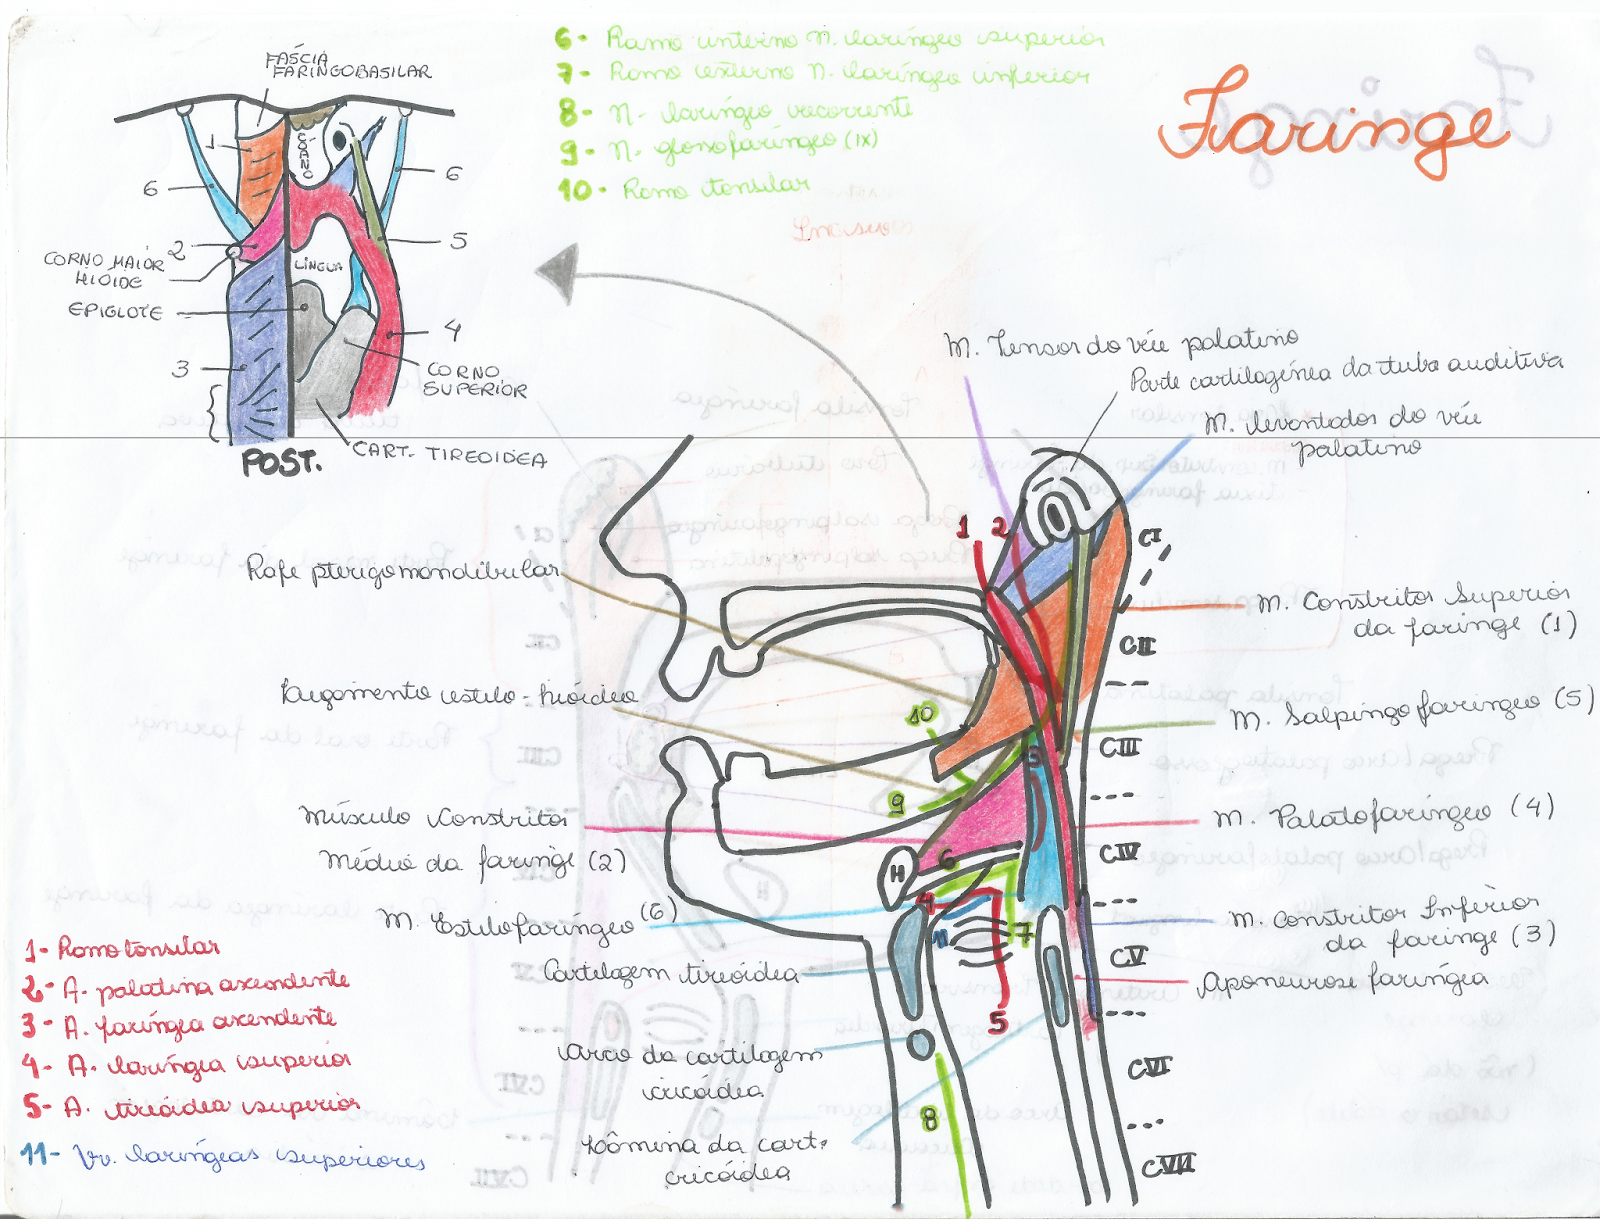 Faringe
FÁSCIA
FARINGOBASILAR
1
COANO
6
6
2
5
CORNO MAIOR
HIOIDE
LÍNGUA
EPIGLOTE
4
3
CORNO
SUPERIOR
CART. TIREOIDEA
POST.
6- Ramo interno N. laríngeo superior
7- Ramo externo N. laríngeo inferior
8- N. laríngeo recorrente
9- N. glossofaríngeo (IX)
10- Ramo tonsilar
M. Tensor do véu palatino
Parte cartilagínea da tuba auditiva
M. levantador do véu
palatino
1 2
CI
Rafe pterigomandibular
M. Constritor Superior
da faringe (1)
CII
Ligamento estilo-hióideo
M. Salpingofaríngeo (5)
10
3
CIII
9
Músculo Constritor
Médio da faringe (2)
M. Palatofaríngeo (4)
6
H
CIV
4
M. Estilofaríngeo (6)
M. Constritor Inferior
da faringe (3)
11
7
CV
Cartilagem tireóidea
Aponeurose faríngea
5
Arco da cartilagem
cricóidea
CVI
8
Lâmina da cart.
cricóidea
CVII
1- Ramo tonsilar
2- A. palatina ascendente
3- A. faríngea ascendente
4- A. laríngea superior
5- A. tireóidea superior
11- Vv. laríngeas superiores